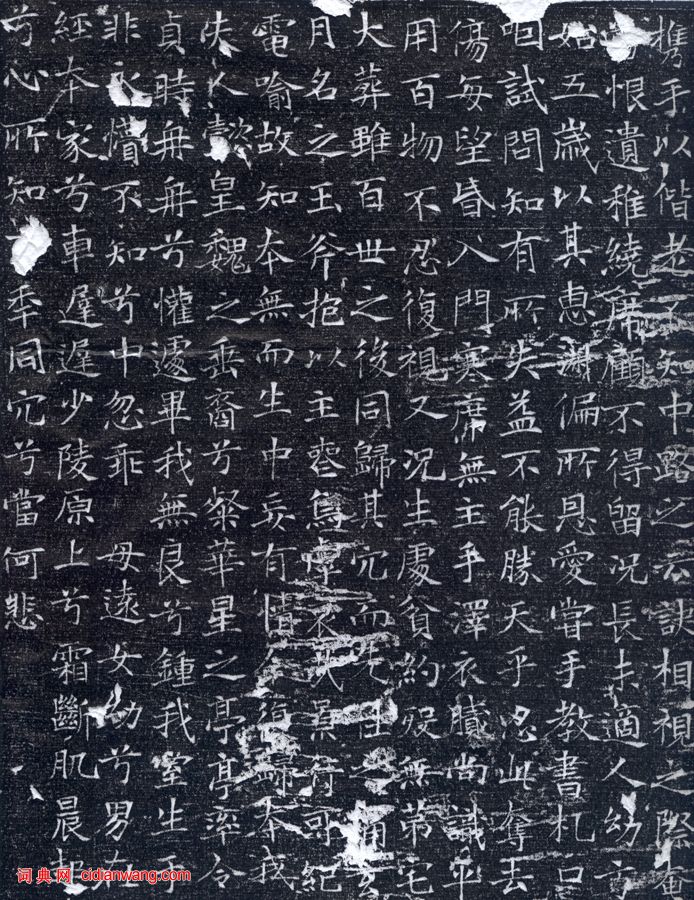 攜手以偕老不知中路之云訣相視之際奄
恨遺稚繞席顧不得留況長未適人幼方
始五歲以其惠淑偏所恩愛嘗手教書札口
咽試問知有所失益不能勝天乎忍此奪去
傷每望昏入門寒席無主手澤衣膩尚識平
用百物不忍復視又況生處貧約歿無第宅
大葬雖百世之後同歸其穴而先往之痛玄
月名之玉斧抱以主喪烏虖哀哉景行可紀
電喻故知本無而生中妄有情今復歸本我
夫人懿皇魏之垂裔兮粲華星之亭亭率令
貞時冉冉兮懽遽畢我無良兮鍾我室生于
非永懵不知兮中忽乖 母遠女幼兮男在
經本家兮車遲遲少陵原上兮霜斷肌晨起
兮心所知百年同穴兮當何悲
词典网 cidianwang.com